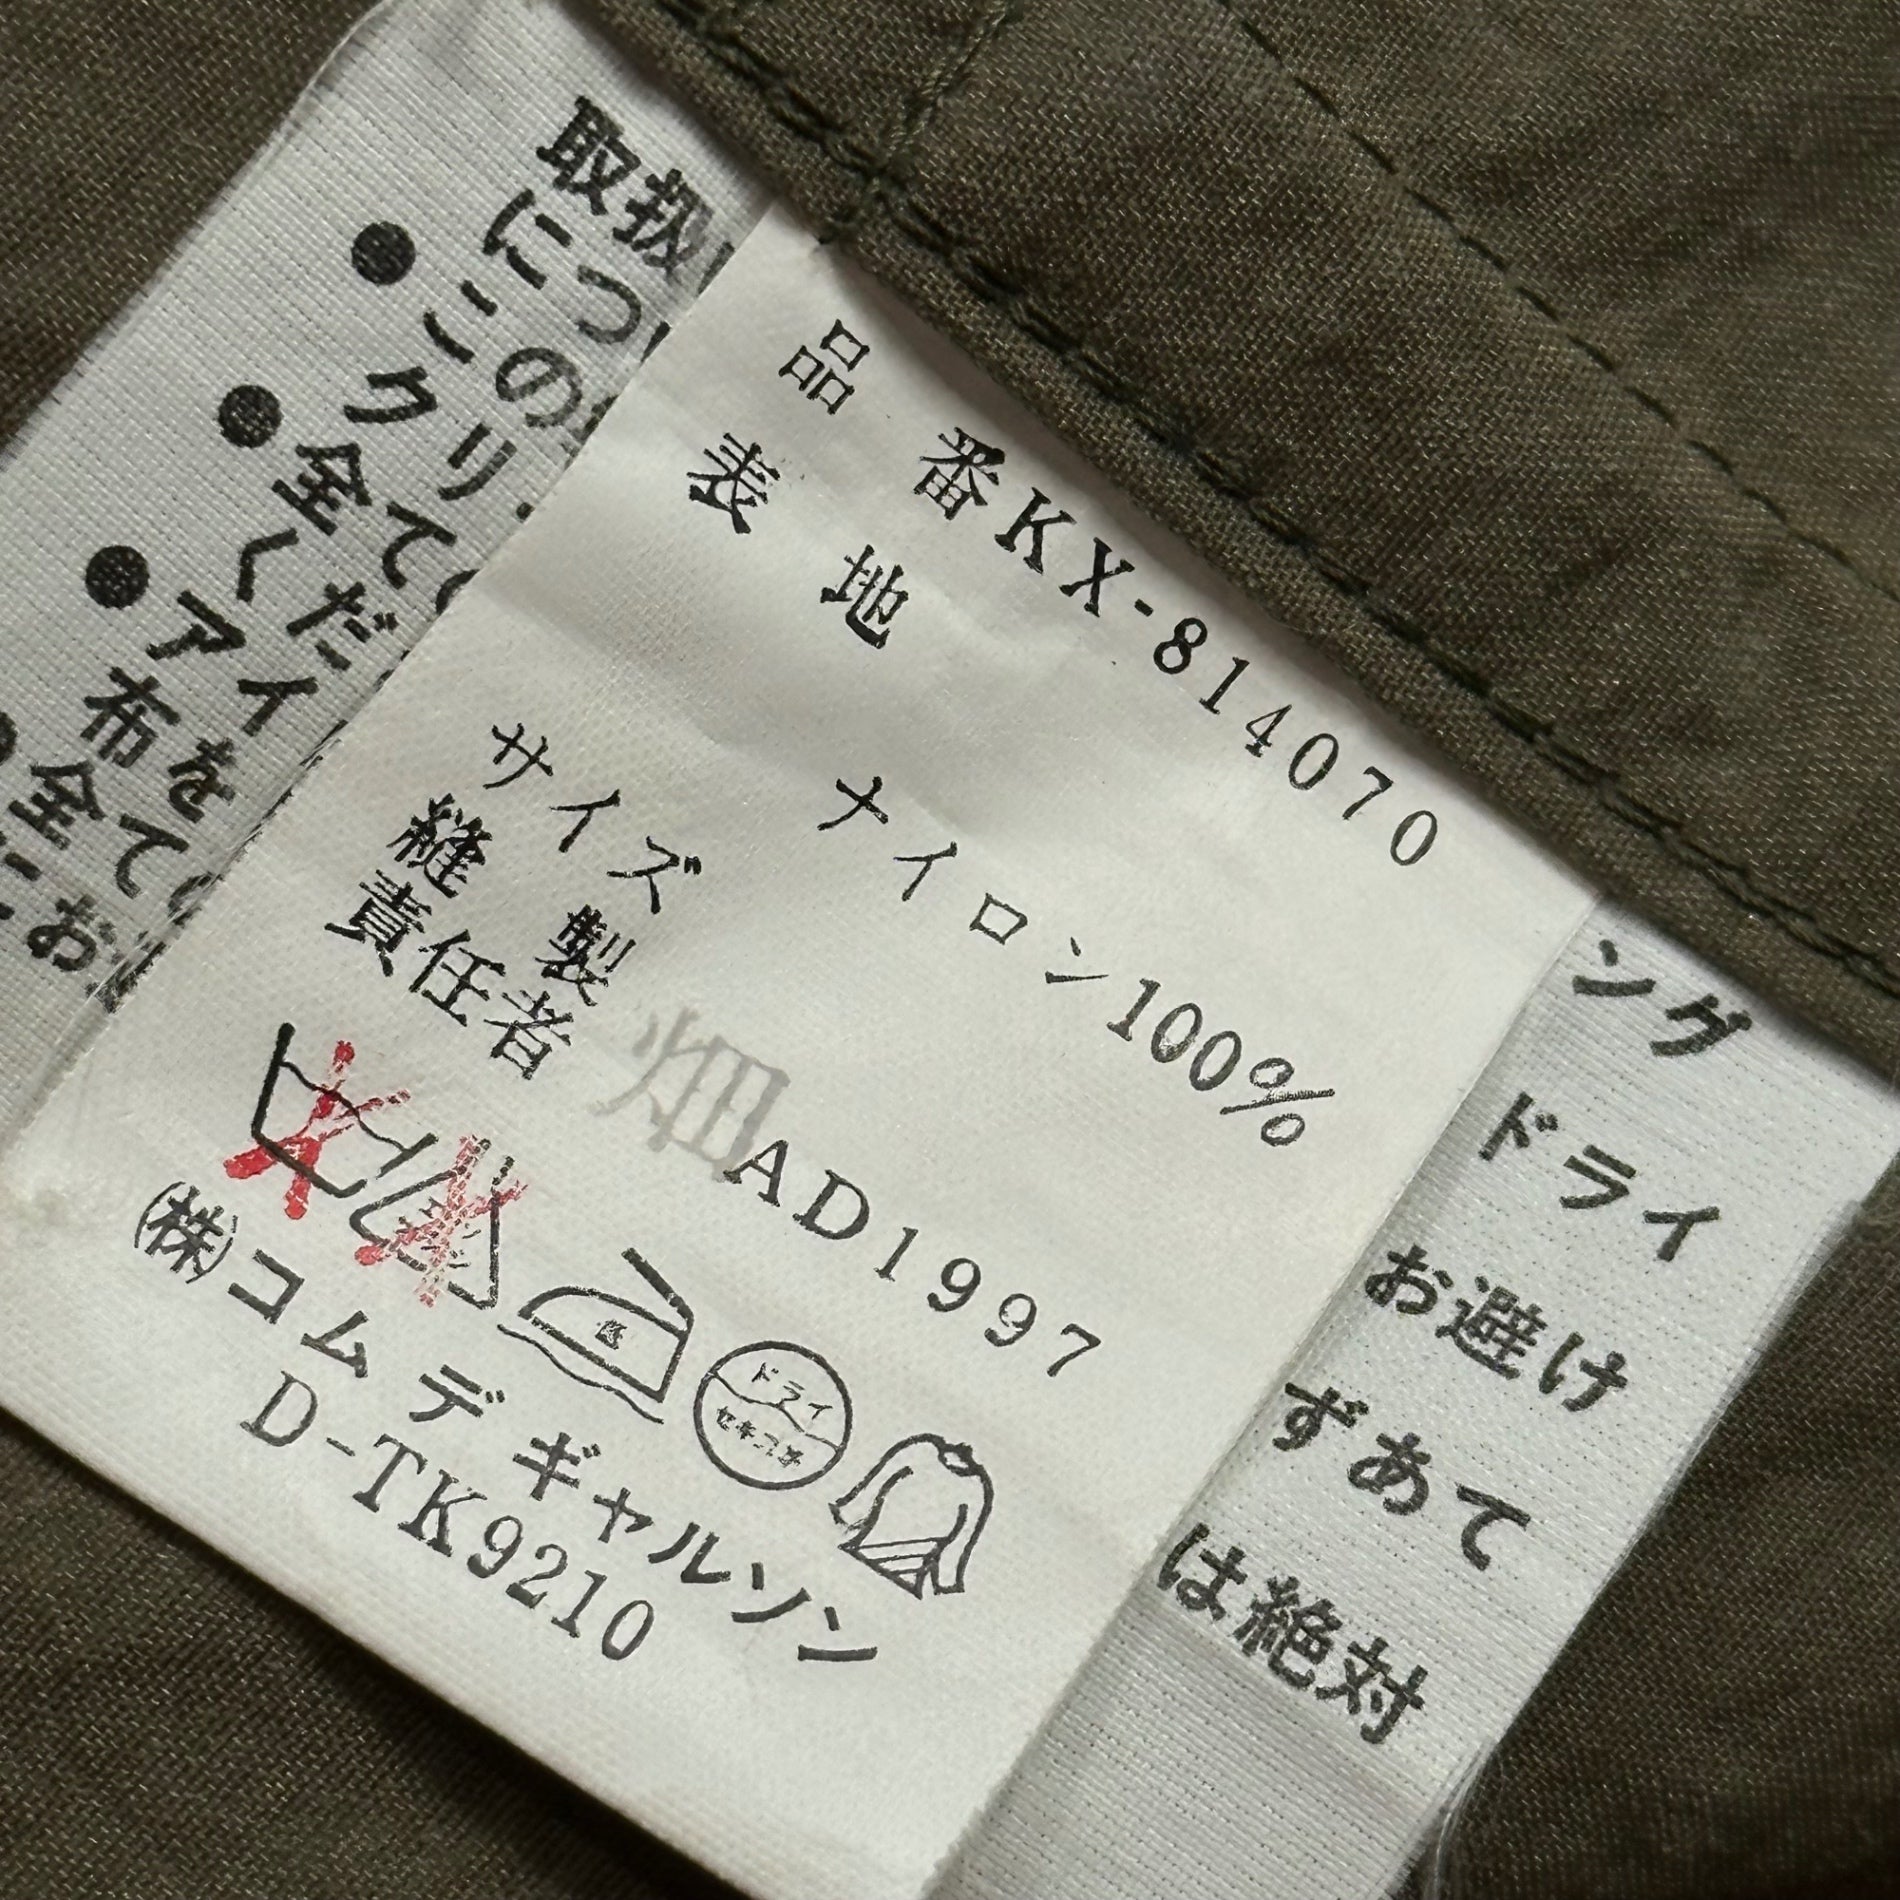 品番KX-814070
表地
ナイロン100%
サイズ
縫製
責任者 畑 AD1997
ドライ
セキユ系
㈱コムデギャルソン
D-TK9210
取扱
につ
●この
クリ
ング
●全ての
ドライ
くだ
お避け
●アイ
布を
ずあて
全ての
は絶対
にお